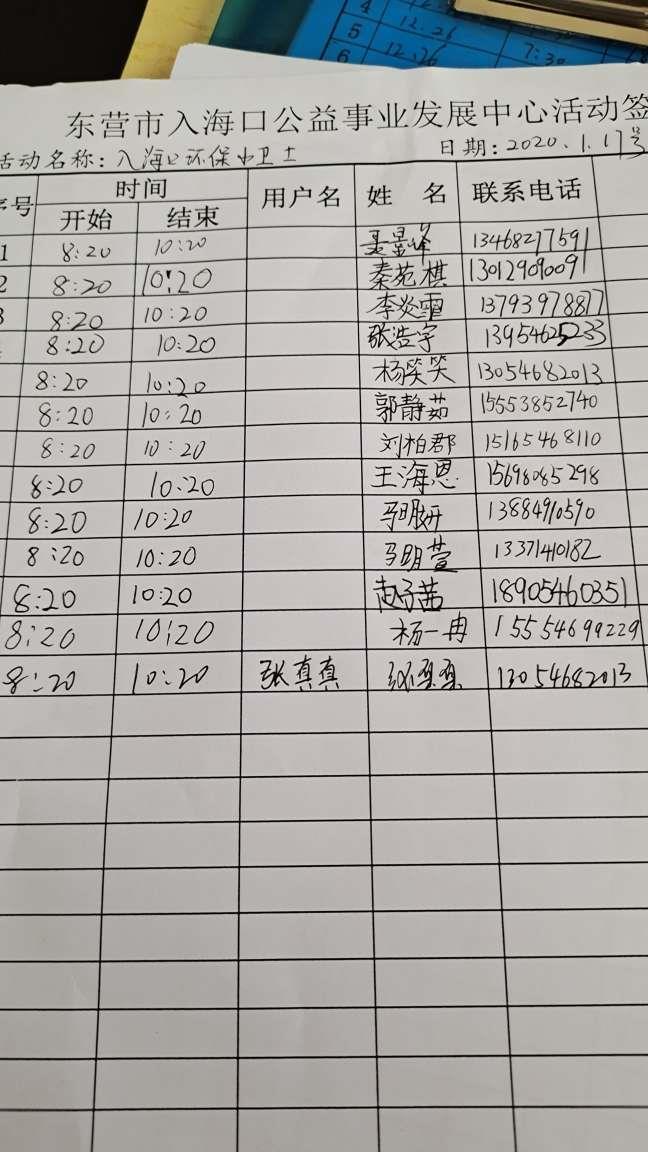 4
5 12.26
6 12.26 7:30
东营市入海口公益事业发展中心活动签
活动名称：入海口环保小卫士 日期：2020.1.17号
序号 时间 用户名 姓 名 联系电话
开始 结束
1 8:20 10:20 13468277591
2 8:20 10:20 秦苑棋 13012909091
3 8:20 10:20 李炎霏 13793978877
8:20 10:20 张浩宇 13954625233
8:20 10:20 杨笑笑 13054682013
8:20 10:20 郭静茹 15553852740
8:20 10:20 刘柏郡 15165468110
8:20 10:20 王海恩 15698085298
8:20 10:20 马明妍 13884910590
8:20 10:20 马明萱 13371410182
8:20 10:20 赵子茜 18905460351
8:20 10:20 杨一冉 15554699229
8:20 10:20 张真真 张真真 13054682013